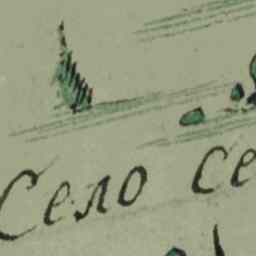 Село се